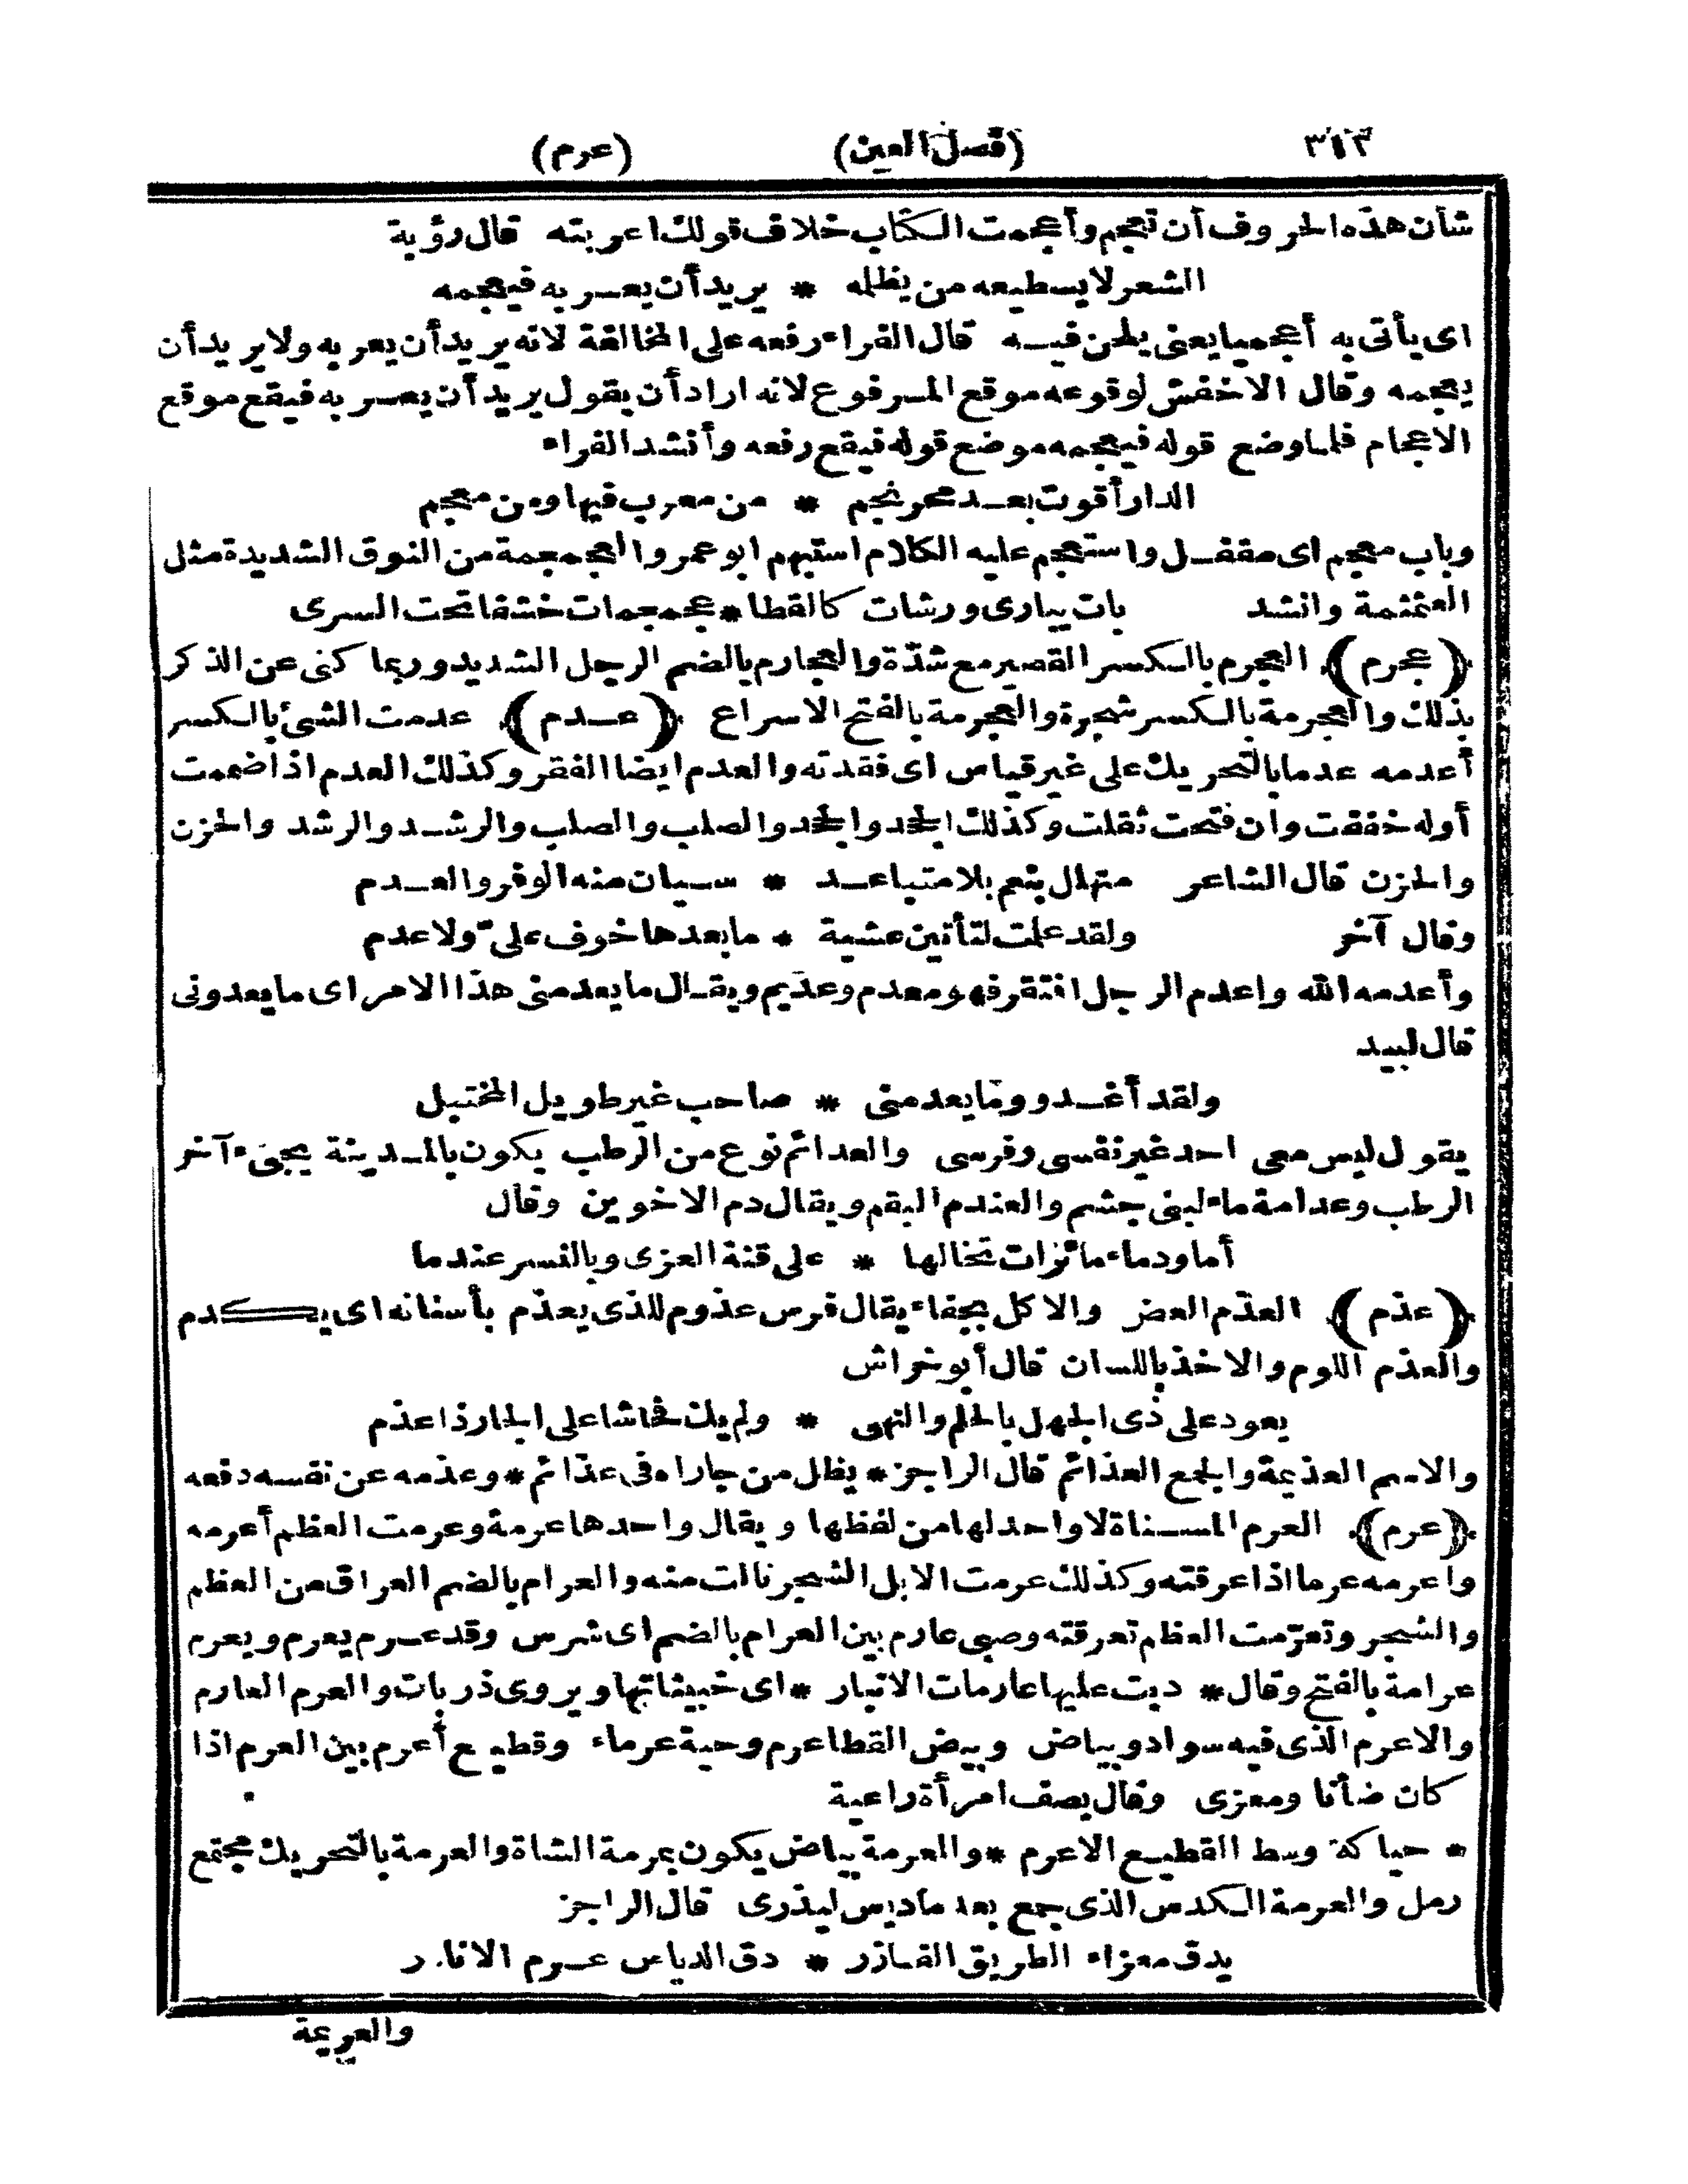 ٣١٣ (فصل العين) (عرم)
شأن هذه الحروف أن تعجم وأعجمت الكتاب خلاف قولك اعربته قال رؤبة
الشعر لا يسطيعه من يظلمه * يريد أن يعربه فيعجمه
اى يأتى به أعجميا يعنى يلحن فيه قال الفراء رفعه على المخالفة لانه يريد أن يعربه ولا يريد أن
يعجمه وقال الاخفش لوقوعه موقع المرفوع لانه اراد أن يقول يريد أن يعربه فيقع موقع
الاعجام فلما وضع قوله فيعجمه موضع قوله فيقع رفعه وأنشد الفراء
الدار أقوت بعد محرنجم * من معرب فيها ومن معجم
وباب معجم اى مقفل واستعجم عليه الكلام استبهم ابو عمرو العجمجمة من النوق الشديدة مثل
العثمثمة وانشد بات يبارى ورشات كالقطا * عجمجمات خشفا تحت السرى
(عجرم) العجرم بالكسر القصير مع شدّة والعجارم بالضم الرجل الشديد وربما كنى عن الذكر
بذلك والعجرمة بالكسر شجرة والعجرمة بالفتح الاسراع (عدم) عدمت الشئ بالكسر
أعدمه عدما بالتحريك على غير قياس اى فقدته والعدم ايضا الفقر وكذلك العدم اذا ضممت
أوله خففت وان فتحت ثقلت وكذلك الجحد والجحد والصلب والصلب والرشد والرشد والحزن
والحزن قال الشاعر متهلل بنعم بلا متباعد * سيان منه الوفر والعدم
وقال آخر ولقد علمت لتأتين عشية * ما بعدها خوف علىّ ولا عدم
وأعدمه الله واعدم الرجل افتقر فهو معدم وعديم ويقال ما يعدمنى هذا الامر اى ما يعدونى
قال لبيد
ولقد أغدو وما يعدمنى * صاحب غير طويل المختبل
يقول ليس معى احد غير نفسى وفرسى والعدائم نوع من الرطب يكون بالمدينة يجىء آخر
الرطب وعدامة ماء لبنى جشم والعندم البقم ويقال دم الاخوين وقال
أما ودماء مائرات تخالها * على قنة العزى وبالنسر عندما
(عذم) العذم العض والاكل بجفاء يقال فرس عذوم للذى يعذم بأسنانه اى يكدم
والعذم اللوم والاخذ باللسان قال أبو خراش
يعود على ذى الجهل بالحلم والنهى * ولم يك فحاشا على الجار ذا عذم
والاسم العذيمة والجمع العذائم قال الراجز * يظل من جاراه فى عذائم * وعذمه عن نفسه دفعه
(عرم) العرم المسناة لا واحد لها من لفظها ويقال واحدها عرمة وعرمت العظم أعرمه
واعرمه عرما اذا عرقته وكذلك عرمت الابل الشجر نالت منه والعرام بالضم العراق من العظم
والشجر وتعرّمت العظم تعرقته وصبى عارم بين العرام بالضم اى شرس وقد عرم يعرم ويعرم
عرامة بالفتح وقال * دبت عليها عارمات الانبار * اى خبيثاتها ويروى ذربات والعرم العارم
والاعرم الذى فيه سواد وبياض وبيض القطا عرم وحية عرماء وقطيع أعرم بين العرم اذا
كان ضأنا ومعزى وقال يصف امرأة راعية
* حياكة وسط القطيع الاعرم * والعرمة بياض يكون بمرمة الشاة والعرمة بالتحريك مجتمع
رمل والعرمة الكدس الذى جمع بعد ما ديس ليذرى قال الراجز
يدق معزاء الطريق الفازر * دق الدياس عرم الانادر
والعريمة